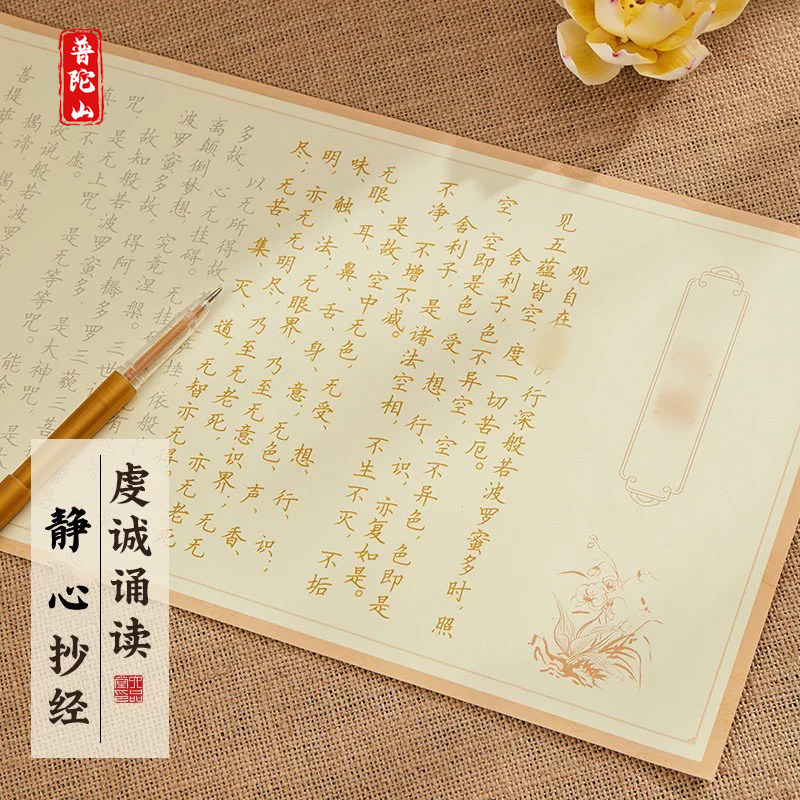 普陀山
观自在
行深般若波罗蜜多时,照
见五蕴皆空,度一切苦厄。
舍利子,色不异空,空不异色,色即是
空,空即是色,受、想、行、识,亦复如是。
舍利子,是诸法空相,不生不灭,不垢
不净,不增不减。
是故,空中无色,无受、想、行、识;
无眼、耳、鼻、舌、身、意;无色、声、香、
味、触、法;无眼界,乃至无意识界;无无
明,亦无无明尽,乃至无老死,亦无老死
尽;无苦、集、灭、道,无智亦无得。
以无所得故
多故,心无挂碍。无挂
离颠倒梦想,究竟涅槃。三世
波罗蜜多故,得阿耨多罗三藐三
故知般若波罗蜜多,是大神咒,
咒,是无上咒,是无等等咒。能除
真不虚。
故说般若波罗
揭谛,揭
菩提萨
虔诚诵读
静心抄经